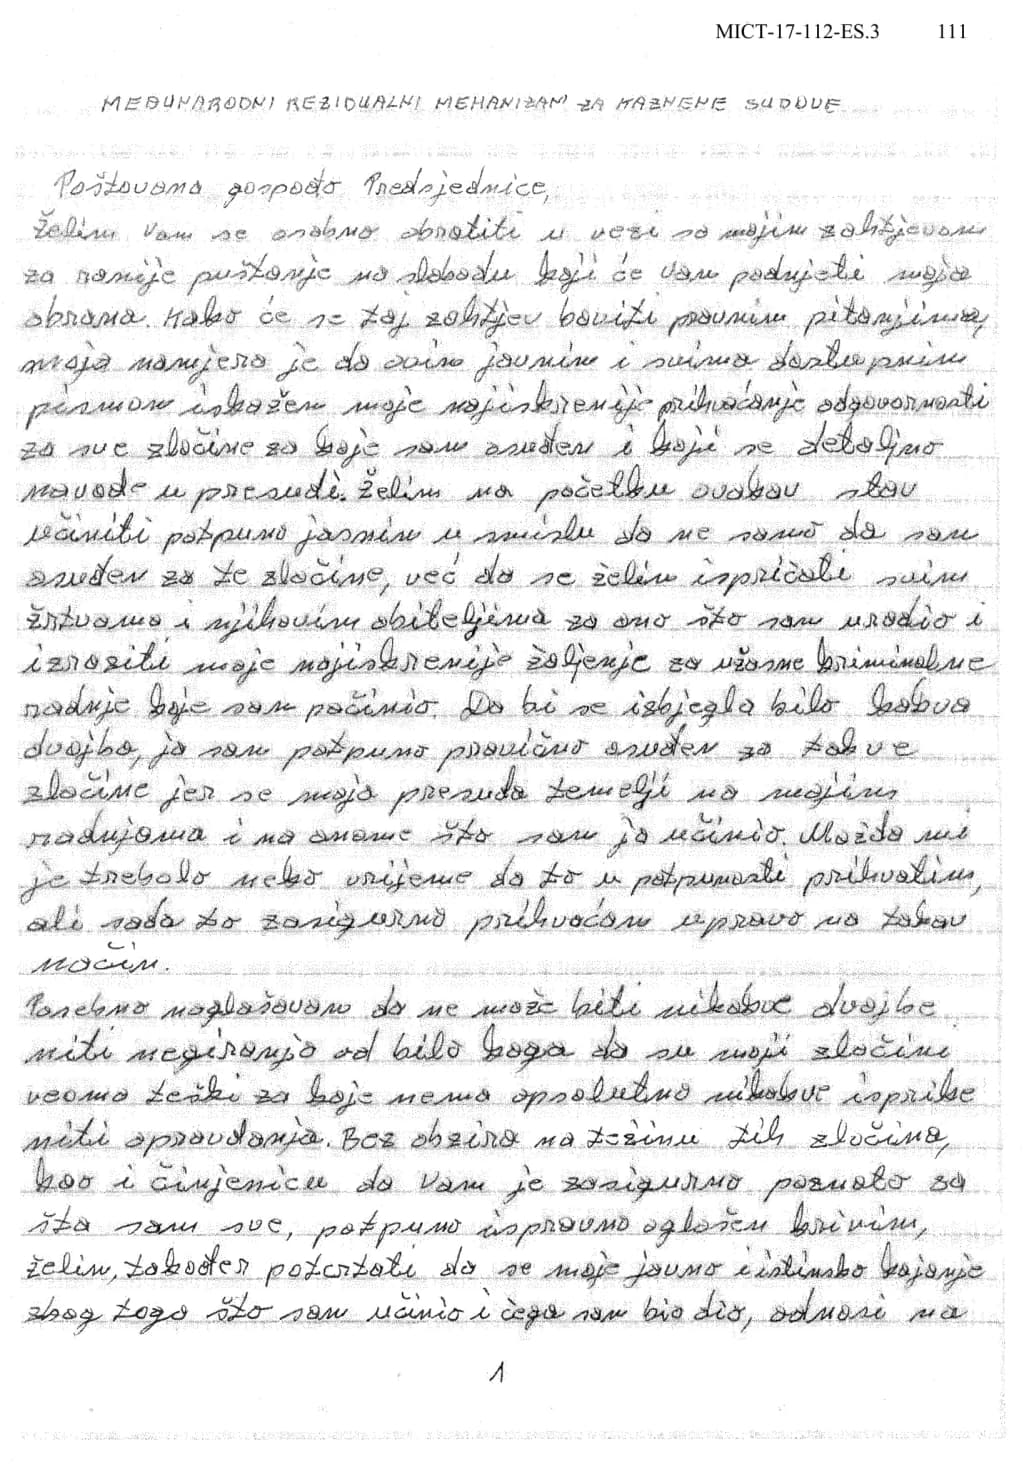 MICT-17-112-ES.3 111
MEĐUNARODNI REZIDUALNI MEHANIZAM ZA KAZNENE SUDOVE
Poštovana gospođo Predsjednice,
Želim Vam se osobno obratiti u vezi sa mojim zahtjevom
za ranije puštanje na slobodu koji će Vam podnijeti moja
obrana. Kako će se taj zahtjev baviti pravnim pitanjima,
moja namjera je da ovim javnim i svima dostupnim
pismom iskažem moje najiskrenije prihvaćanje odgovornosti
za sve zločine za koje sam osuđen i koji se detaljno
navode u presudi. Želim na početku ovakav stav
učiniti potpuno jasnim u smislu da ne samo da sam
osuđen za te zločine, već da se želim ispričati svim
žrtvama i njihovim obiteljima za ono što sam uradio i
izraziti moje najiskrenije žaljenje za užasne kriminalne
radnje koje sam počinio. Da bi se izbjegla bilo kakva
dvojba, ja sam potpuno pravično osuđen za takve
zločine jer se moja presuda temelji na mojim
radnjama i na onome što sam ja učinio. Možda mi
je trebalo neko vrijeme da to u potpunosti prihvatim,
ali sada to zasigurno prihvaćam upravo na takav
način.
Posebno naglašavam da ne može biti nikakve dvojbe
niti negiranja od bilo koga da su moji zločini
veoma teški za koje nema apsolutno nikakve isprike
niti opravdanja. Bez obzira na težinu tih zločina,
kao i činjenicu da Vam je zasigurno poznato za
šta sam sve, potpuno ispravno oglašen krivim,
želim, također potcrtati da se moje javno i istinsko kajanje
zbog toga što sam učinio i čega sam bio dio, odnosi na
1